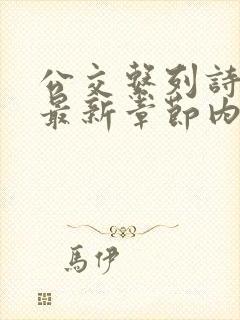 公交系列詩
最新章節內
馬伊